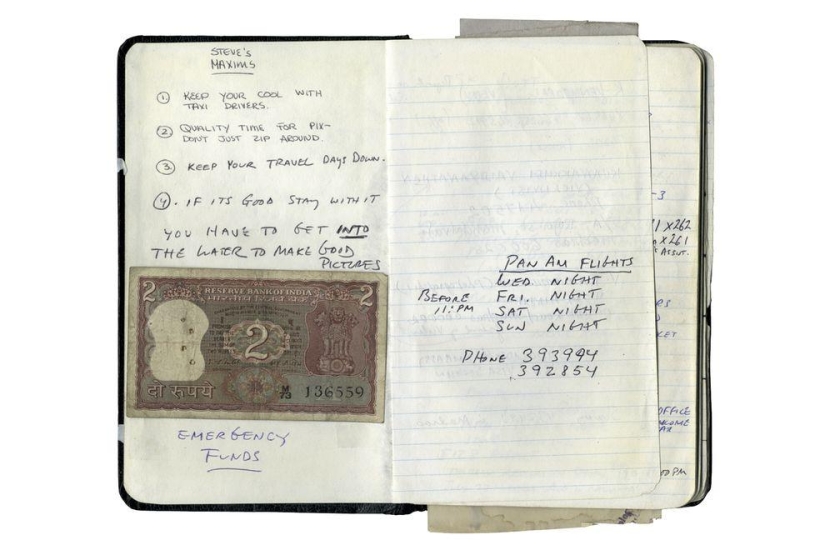 STEVE'S
MAXIMS
1. KEEP YOUR COOL WITH
TAXI DRIVERS.
2. QUALITY TIME FOR PIX-
DON'T JUST ZIP AROUND.
3. KEEP YOUR TRAVEL DAYS DOWN.
4. IF ITS GOOD STAY WITH IT
YOU HAVE TO GET INTO
THE WATER TO MAKE GOOD
PICTURES
2 RESERVE BANK OF INDIA 2
2
दो रुपये
M/73 136559
EMERGENCY
FUNDS
PAN AM FLIGHTS
WED NIGHT
BEFORE FRI. NIGHT
11:PM SAT NIGHT
SUN NIGHT
PHONE 393944
392854
-3
X262
X261
OFFICE
PM